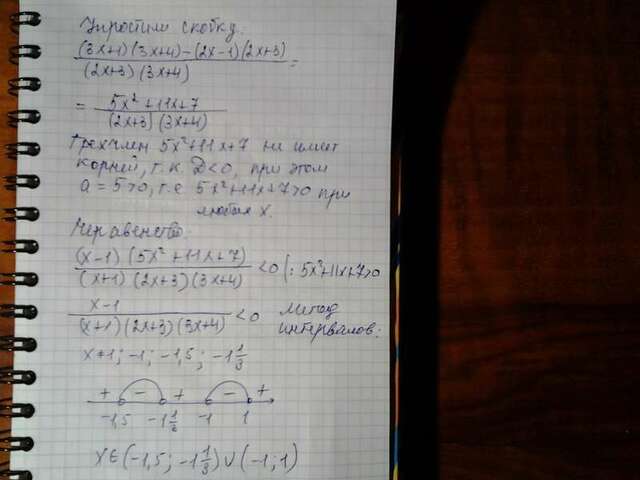 Упростим скобку:
(3x+1)(3x+4)-(2x-1)(2x+3)
(2x+3)(3x+4) =
= 5x²+11x+7
(2x+3)(3x+4)
Трехчлен 5x²+11x+7 не имет
корней, т.к. D<0, при этом
a=5>0, т.е 5x²+11x+7>0 при
любых x.
Неравенство:
(x-1)(5x²+11x+7)
(x+1)(2x+3)(3x+4) <0 |: 5x²+11x+7>0
x-1
(x+1)(2x+3)(3x+4) <0 метод
интервалов:
x≠1; -1; -1,5; -1 1/3
+ - + - +
-1,5 -1 1/3 -1 1
x∈(-1,5; -1 1/3)∪(-1; 1)